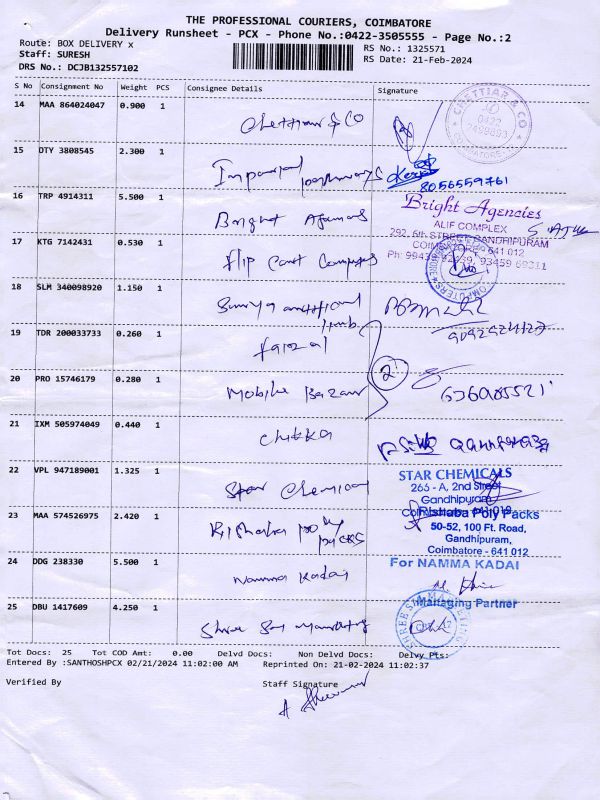 THE PROFESSIONAL COURIERS, COIMBATORE
Delivery Runsheet - PCX - Phone No.:0422-3505555 - Page No.:2
Route: BOX DELIVERY x
RS No.: 1325571
Staff: SURESH
RS Date: 21-Feb-2024
DRS No.: DCJB132557102
S No Consignment No Weight PCS Consignee Details Signature
14 MAA 864024047 0.900 1 Chettiar & CO
CHETTIAR & CO
0422
2499893
COIMBATORE
15 DTY 3808545 2.300 1 Imparial
8056559761
16 TRP 4914311 5.500 1 Bright Agencies
Bright Agencies
ALIF COMPLEX
292, 6th STREET, GANDHIPURAM
COIMBATORE - 641 012
17 KTG 7142431 0.530 1 flip Cart Computers
COMPUTERS
18 SLM 340098920 1.150 1 Surya
19 TDR 200033733 0.260 1 faizal
20 PRO 15746179 0.280 1 Mobile Bazaar
2
21 IXM 505974049 0.440 1
22 VPL 947189001 1.325 1 Star Chemical
STAR CHEMICALS
265 - A, 2nd Street
Gandhipuram,
23 MAA 574526975 2.420 1 Rishaba poly packs
Rishaba Poly Packs
50-52, 100 Ft. Road,
Gandhipuram,
Coimbatore - 641 012
24 DDG 238330 5.500 1 Namma Kadai
For NAMMA KADAI
Managing Partner
25 DBU 1417609 4.250 1 Shree Sai Marketing
Tot Docs: 25 Tot COD Amt: 0.00 Delvd Docs: Non Delvd Docs: Delvy Pts:
Entered By :SANTHOSHPCX 02/21/2024 11:02:00 AM Reprinted On: 21-02-2024 11:02:37
Verified By Staff Signature